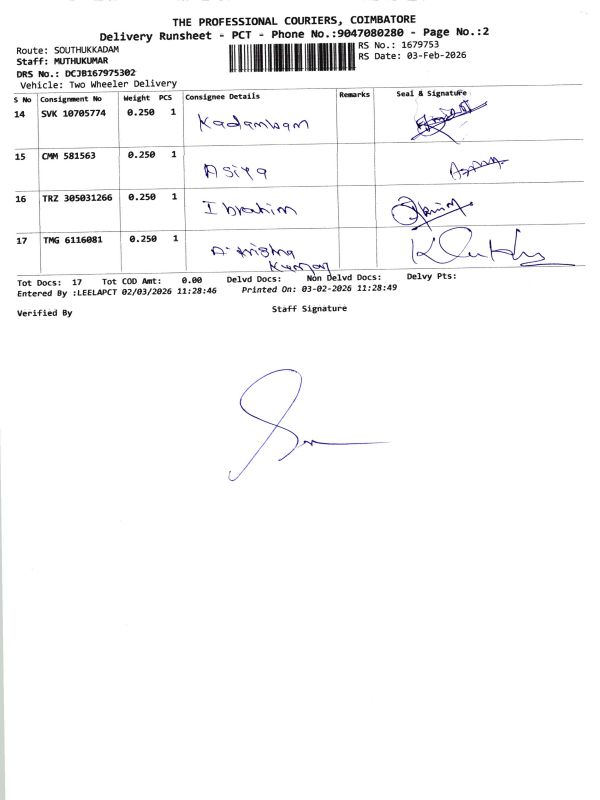 THE PROFESSIONAL COURIERS, COIMBATORE
Delivery Runsheet - PCT - Phone No.:9047080280 - Page No.:2
Route: SOUTHUKKADAM
RS No.: 1679753
Staff: MUTHUKUMAR
RS Date: 03-Feb-2026
DRS No.: DCJB167975302
Vehicle: Two Wheeler Delivery
S No Consignment No Weight PCS Consignee Details Remarks Seal & Signature
14 SVK 10705774 0.250 1 Kadambam
15 CMM 581563 0.250 1 Asiya
16 TRZ 305031266 0.250 1 Ibrahim
17 TMG 6116081 0.250 1
Kumar
Tot Docs: 17 Tot COD Amt: 0.00 Delvd Docs: Non Delvd Docs: Delvy Pts:
Entered By :LEELAPCT 02/03/2026 11:28:46 Printed On: 03-02-2026 11:28:49
Verified By Staff Signature